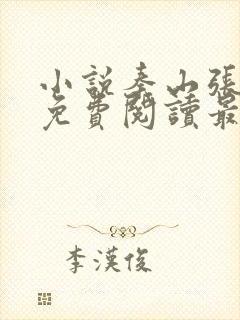 小說泰山張
免費閱讀最
李漢俊